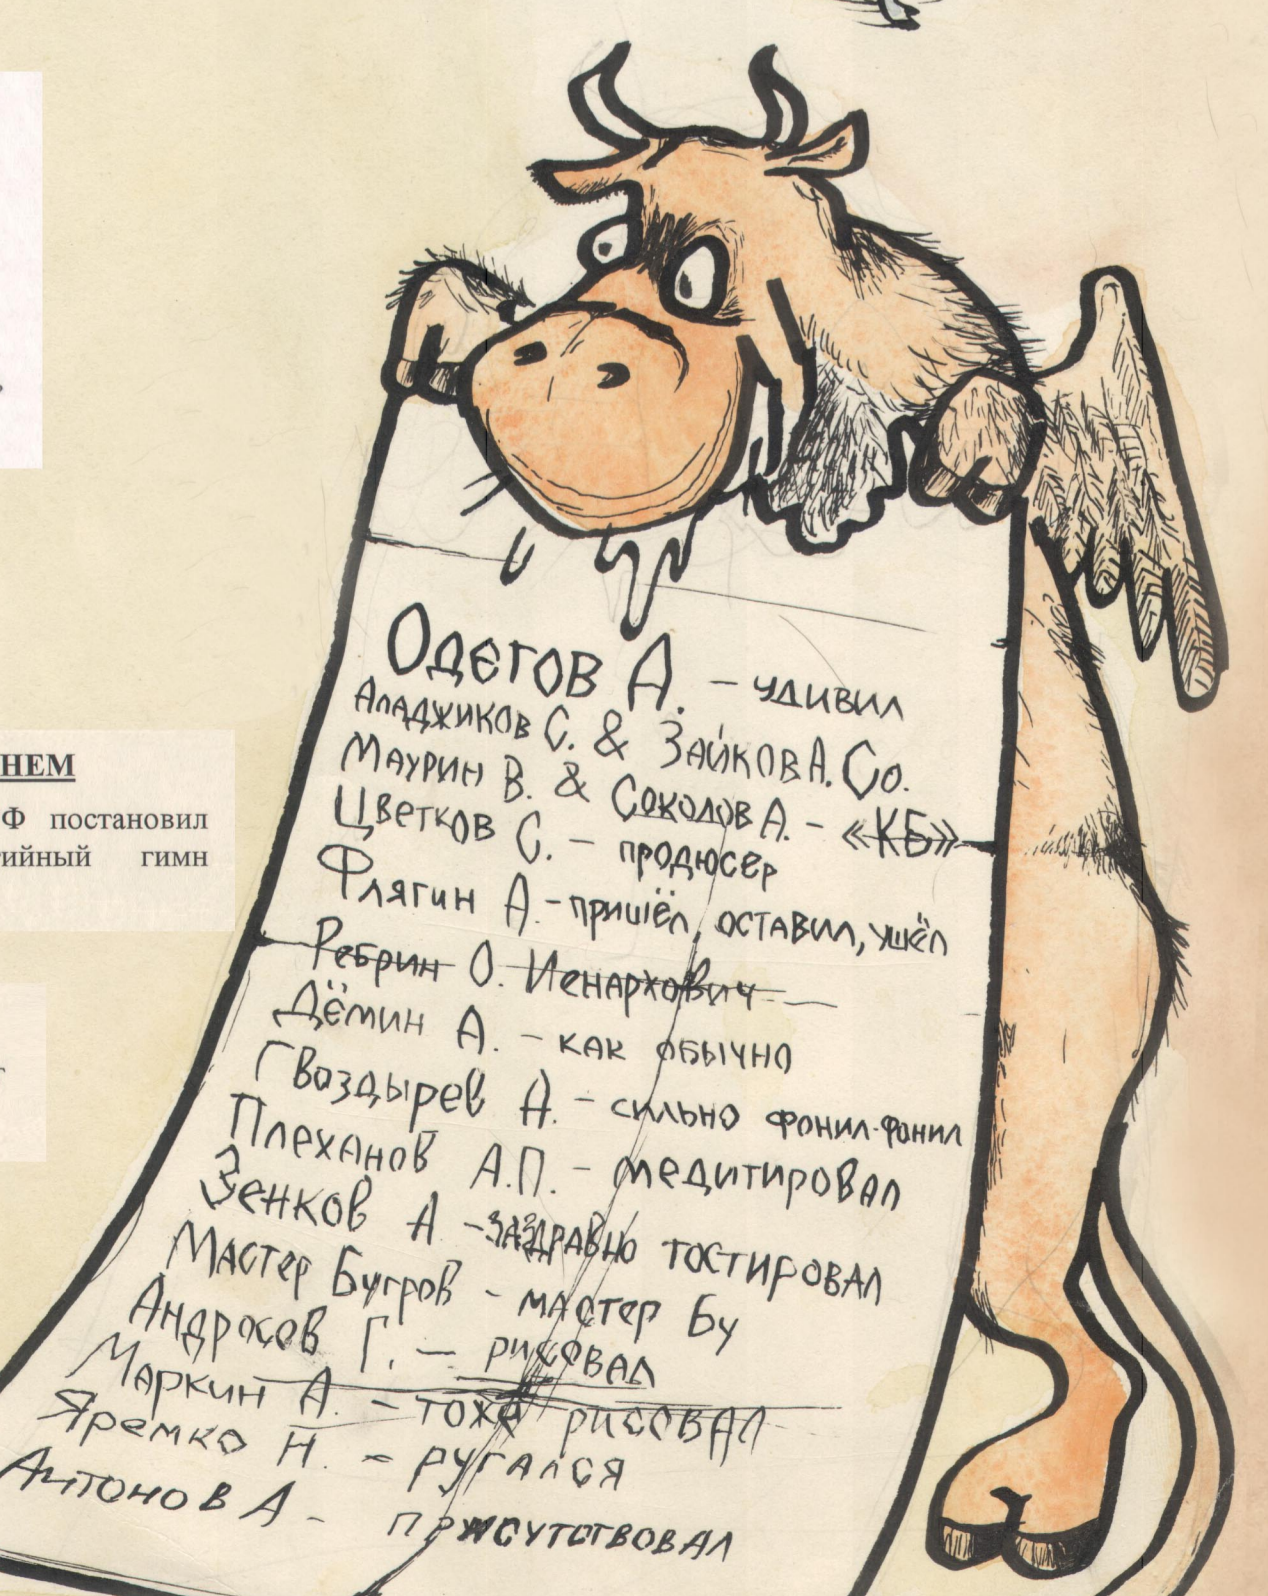 НЕМ
Ф постановил
тийный гимн
Одегов А. - удивил
Аладжиков С. & Зайков А. Co.
Маурин В. & Соколов А. - «КБ»
Цветков С. - продюсер
Флягин А. - пришёл, оставил, ушёл
Ребрин О. Иенархович
Дёмин А. - как обычно
Гвоздырев А. - сильно фонил-фонил
Плеханов А.П. - медитировал
Зенков А - заздравно тостировал
Мастер Бугров - мастер Бу
Андросов Г. - рисовал
Маркин А. - тоже рисовал
Яремко Н. - ругался
Антонов А - присутствовал